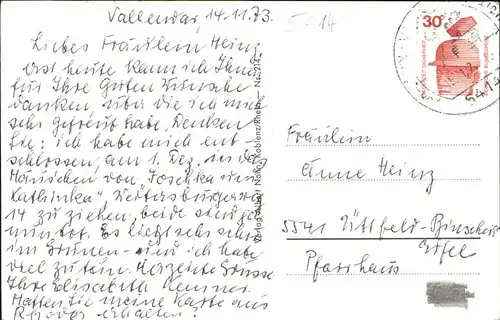 Vallendar, 14.11.73.
Liebes Fräulein Heinz
erst heute kann ich Ihnen
für Ihre guten Wünsche
danken, über die ich mich
sehr gefreut habe. Denken
Sie: ich habe mich ent-
schlossen, am 1. Dez. in das
Häuschen von "Joschka und
Kathinka" Weitersburgerweg
14 zu ziehen, beide sind
tot. Es liegt sehr schön
im Grünen - und ich habe
viel zu tun. Herzliche Grüsse
Ihre Elisabeth
Hatten Sie meine Karte aus
Rhodos erhalten?
5414
30
541
Verlag Albert Koblenz/Rhein Nr. 214
Fräulein
Anne Heinz
5541 Üttfeld-Binscheid
Eifel
Pfarrhaus